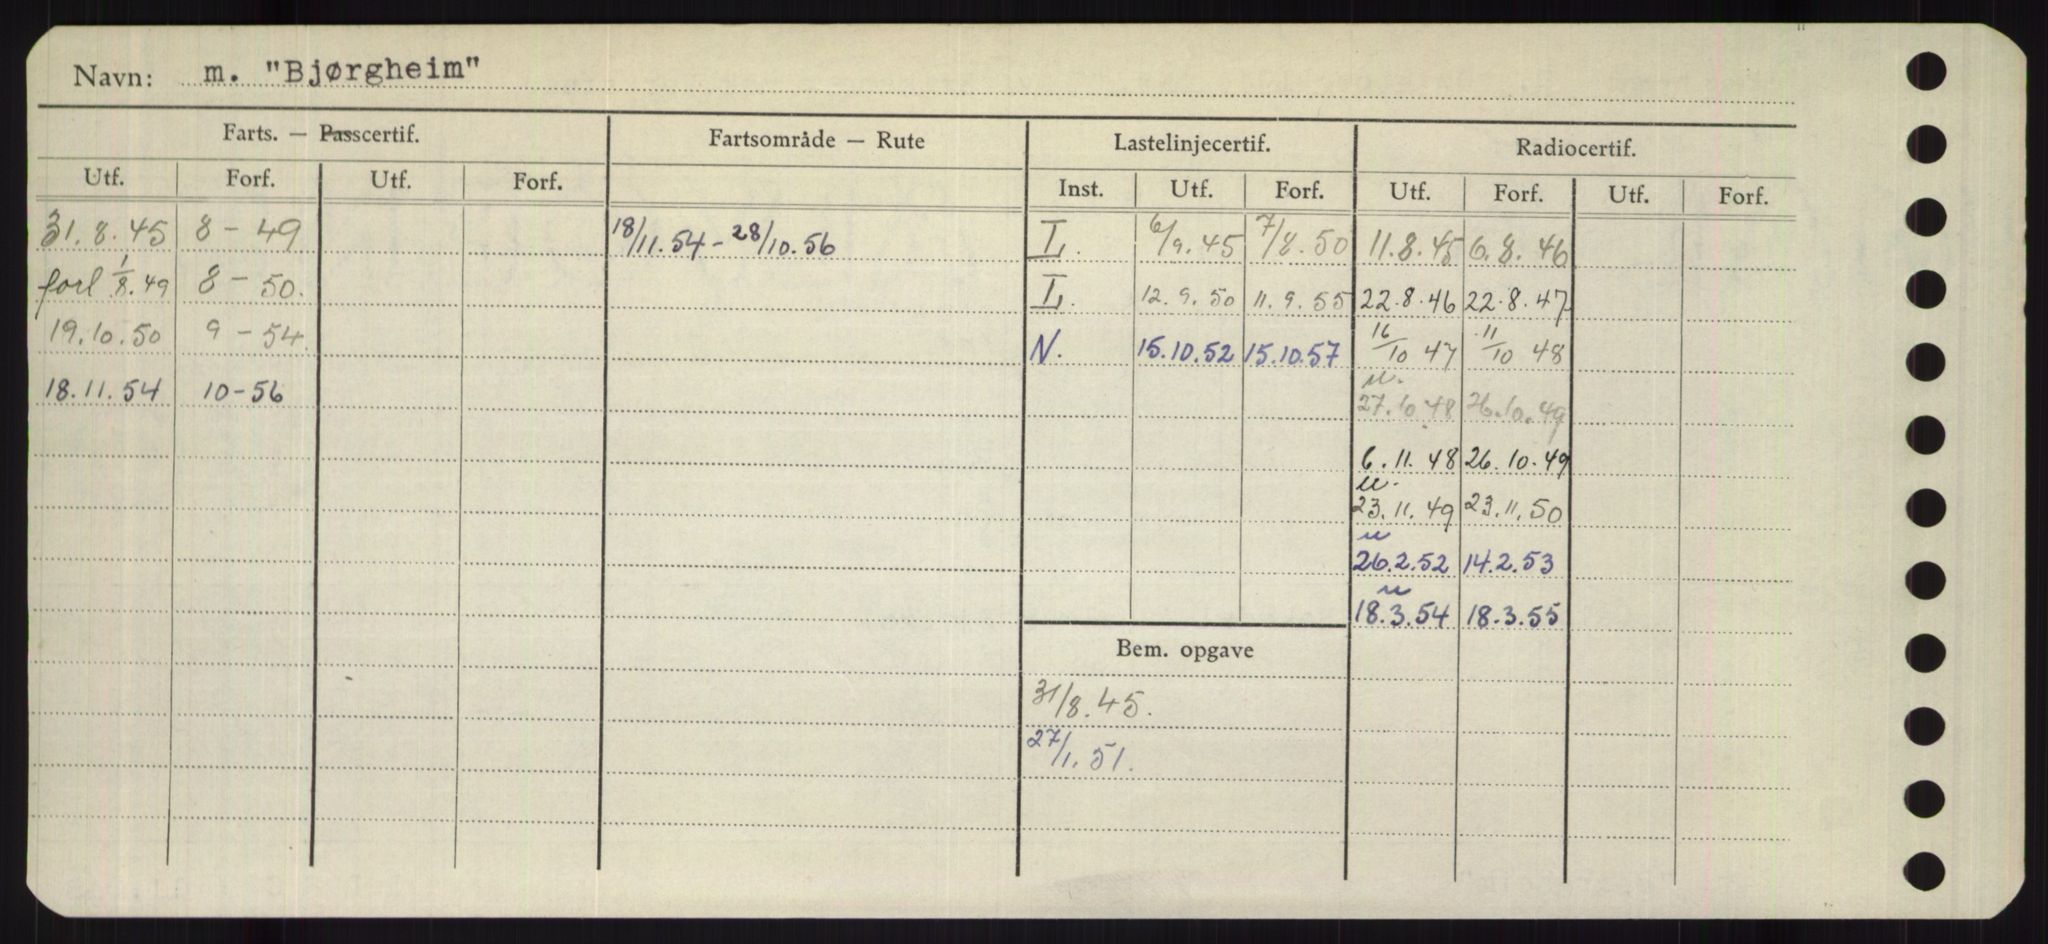 Navn: m. "Bjørgheim"
Farts. — Passcertif. Fartsområde — Rute Lastelinjecertif. Radiocertif.
Utf. Forf. Utf. Forf. Inst. Utf. Forf. Utf. Forf. Utf. Forf.
31.8.45 8 - 49 18/11.54 - 28/10.56 L. 6/9.45 7/8.50 11.8.45 6.8.46
forl 1/8.49 8 - 50. L. 12.9.50 11.9.55 22.8.46 22.8.47
19.10.50 9 - 54. N. 15.10.52 15.10.57 16/10 47 11/10 48
18.11.54 10-56 27.10 48 26.10.49
6.11.48 26.10.49
23.11.49 23.11.50
26.2.52 14.2.53
18.3.54 18.3.55
Bem. opgave
31/8.45.
27/1.51.